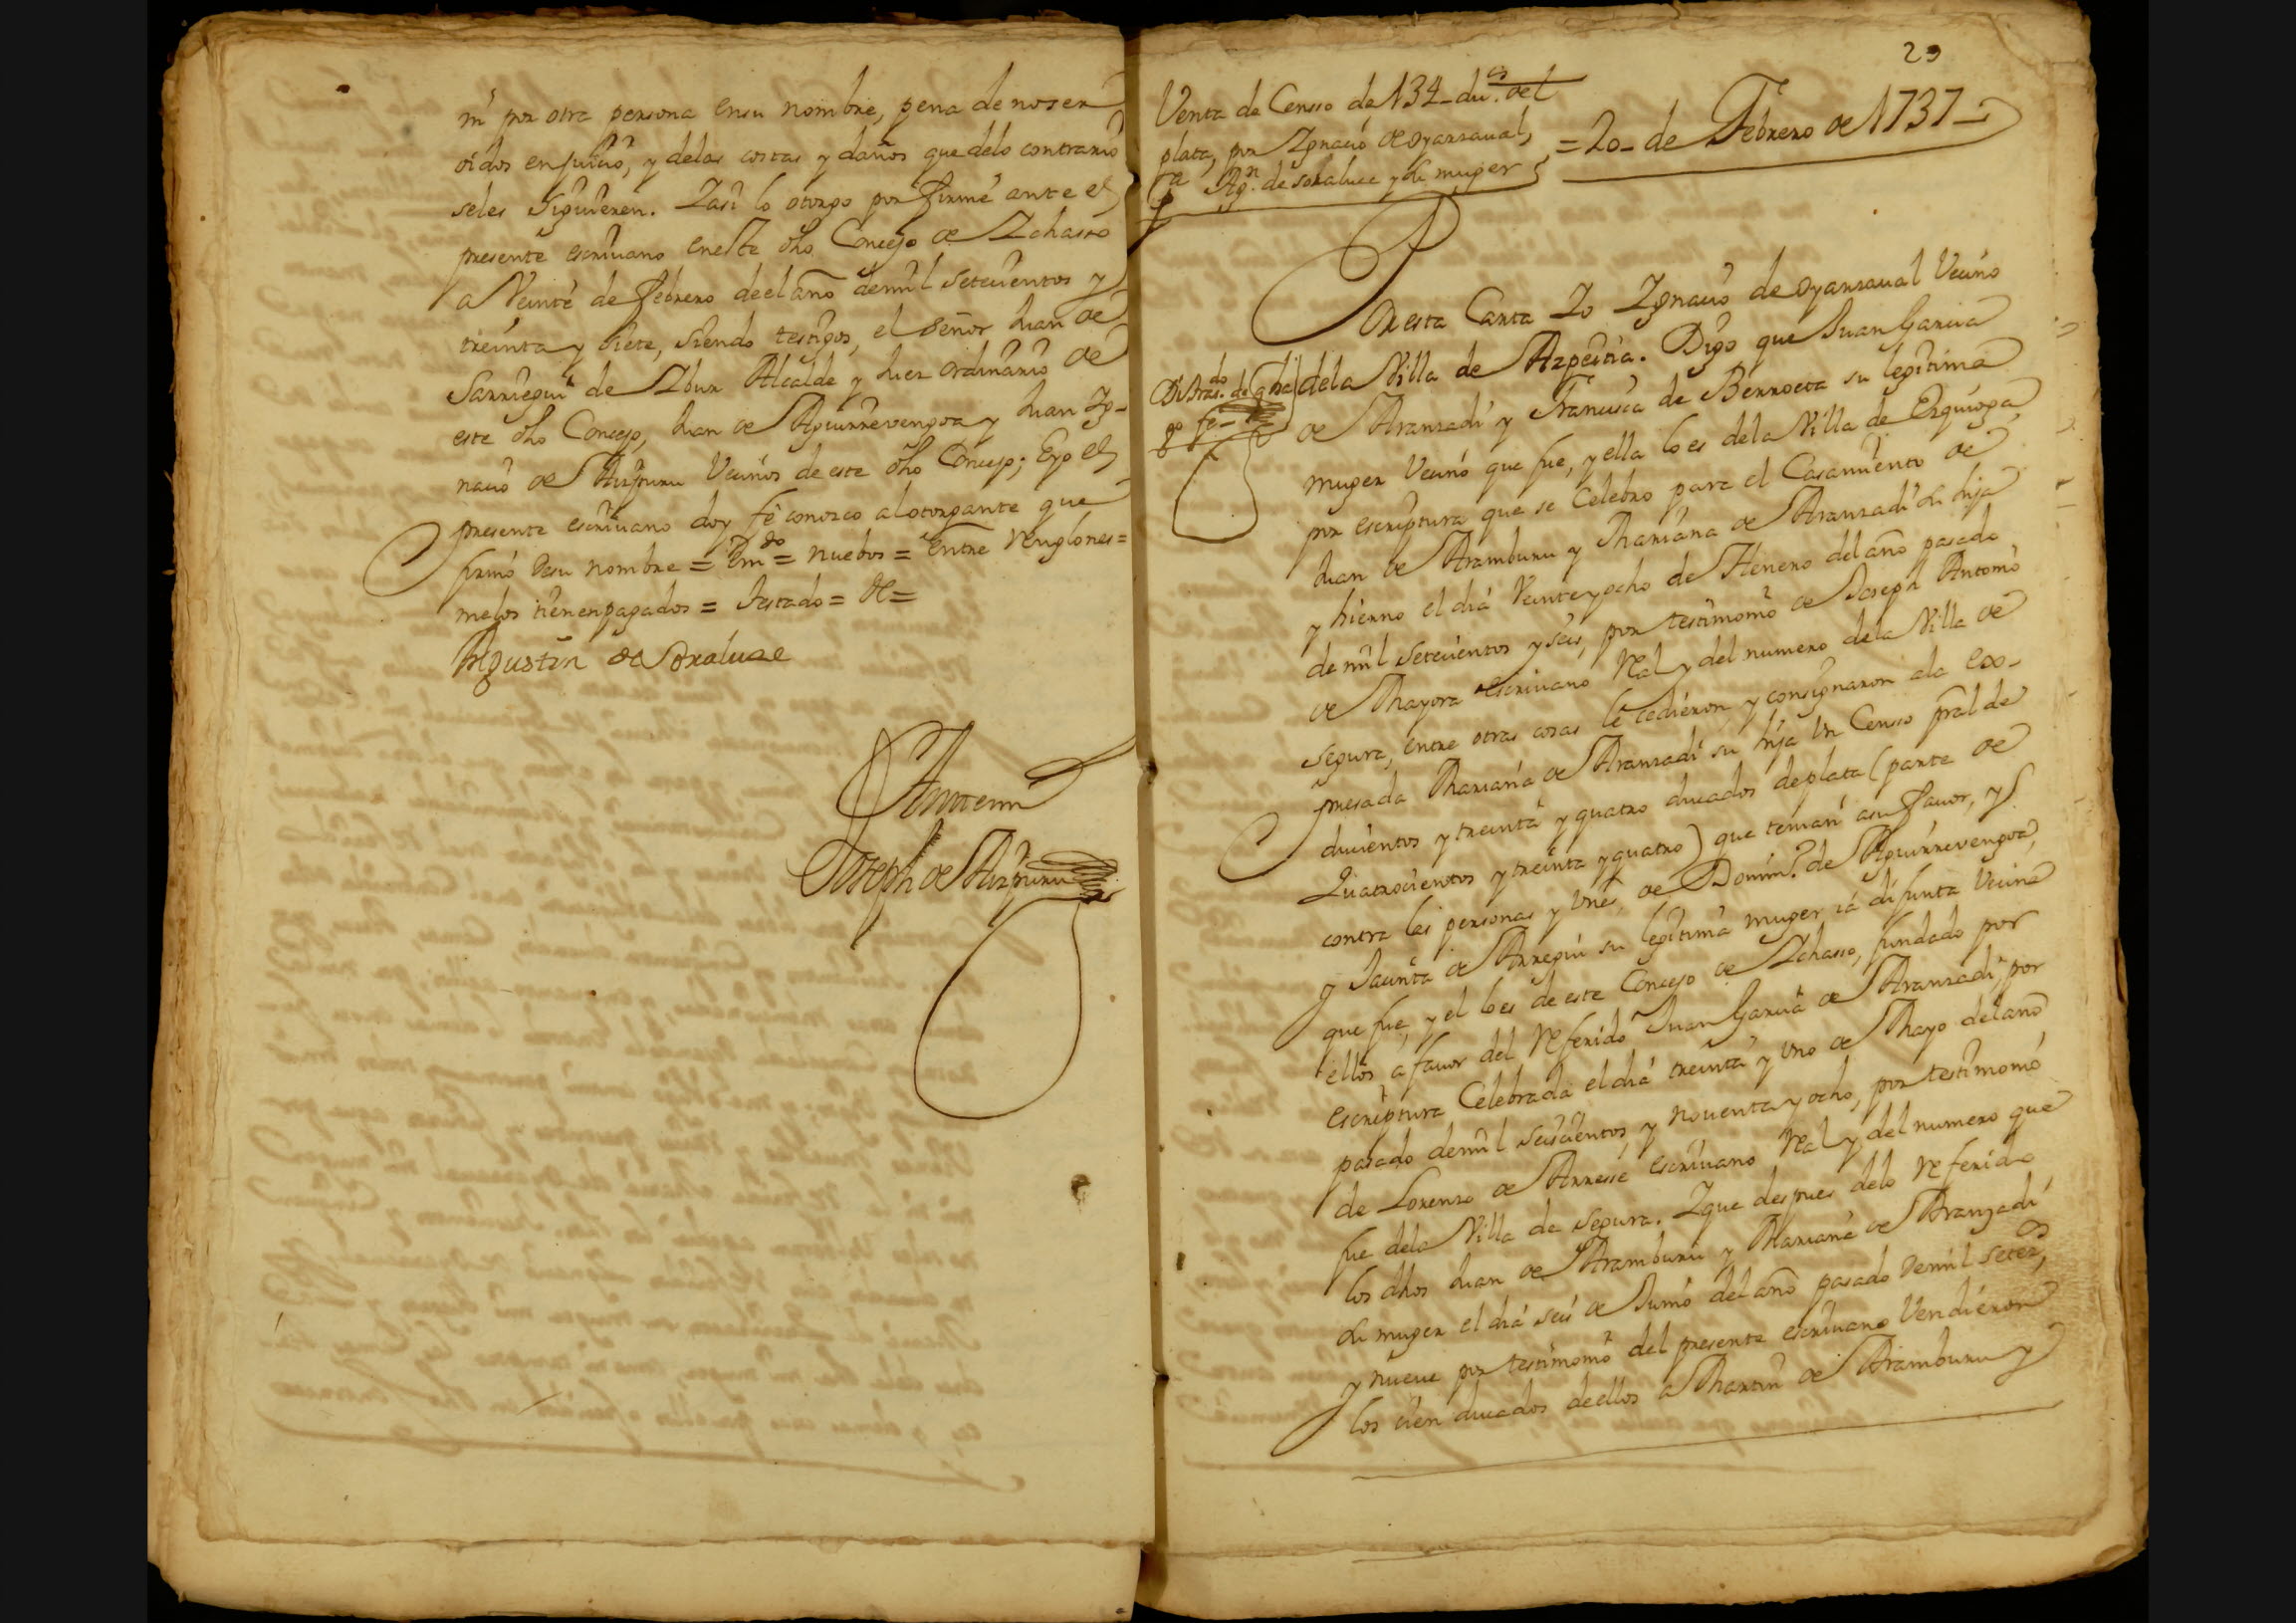 ni por otra persona en su nombre, pena de no ser
oidos en juicio, y de las costas y daños que delo contrario
seles siguieren. Y asi lo otorgo por firme ante el
presente escriuano en este dho Concejo de Ychasso
a Veinte de Febrero de el año de mil setecientos y
treinta y siete, siendo testigos, el señor Juan de
Sarriegui de Ybur Alcalde y Juez ordinario de
este dho Concejo, Juan de Aguirrevengoa y Juan Yg-
nacio de Aizpuru Vecinos de este dho Concejo; Eyo el
presente escriuano doy fe conozco al otorgante que
firmó de su nombre = Emdo = nuebos = Entre Renglones =
melos tienen pagados = Testado = de =
Agustin de Soraluce
Ante mi
Joseph de Aizpuru
29
Venta de Censso de 134 duos de
plata, por Ygnacio de oyarzaual,
pa Agn de soraluce y su muger
= 20 de Febrero de 1737
Por esta Carta Yo Ygnacio de oyarzaual Vecino
dela Villa de Azpeitia. Digo que Juan Garcia
de Aranzadi y Francisca de Berroeta su legitima
muger Vecino que fue, y ella lo es dela Villa de Ezquioga,
por escriptura que se Celebro para el Casamiento de
Juan de Aramburu y Mariana de Aranzadi su hija
y hierno el dia Veinteyocho de Henero del año pasado
de mil setecientos y seis, por testimonio de Joseph Antonio
de Mayora escriuano Real y del numero dela Villa de
Segura, entre otras cosas le cedieron y consignaron ala ex-
presada Mariana de Aranzadi su hija Un Censso pral de
ducientos y treinta y quatro ducados de plata (parte de
Quatrocientos y treinta y quatro) que tenian asu fauor, y
contra las personas y Vnes de Domin.o de Aguirrevengoa,
y Jacinta de Arregui su legitima muger ia difunta Vecina
que fue, y el lo es de este Concejo de Ychasso, fundado por
ellos a fauor del Referido Juan Garcia de Aranzadi, por
escriptura Celebrada el dia treinta y Uno de Mayo del año
pasado de mil seiscientos y nouenta y ocho, por testimonio
de Lorenzo de Arrese escriuano Real y del numero que
fue dela Villa de Segura. Y que despues delo Referido
los dhos Juan de Aramburu y Mariana de Aranzadi
su muger el dia seis de Junio del año pasado de mil setezos
y nueue por testimonio del presente escriuano Vendieron
los cien ducados de ellos a Martin de Aramburu y